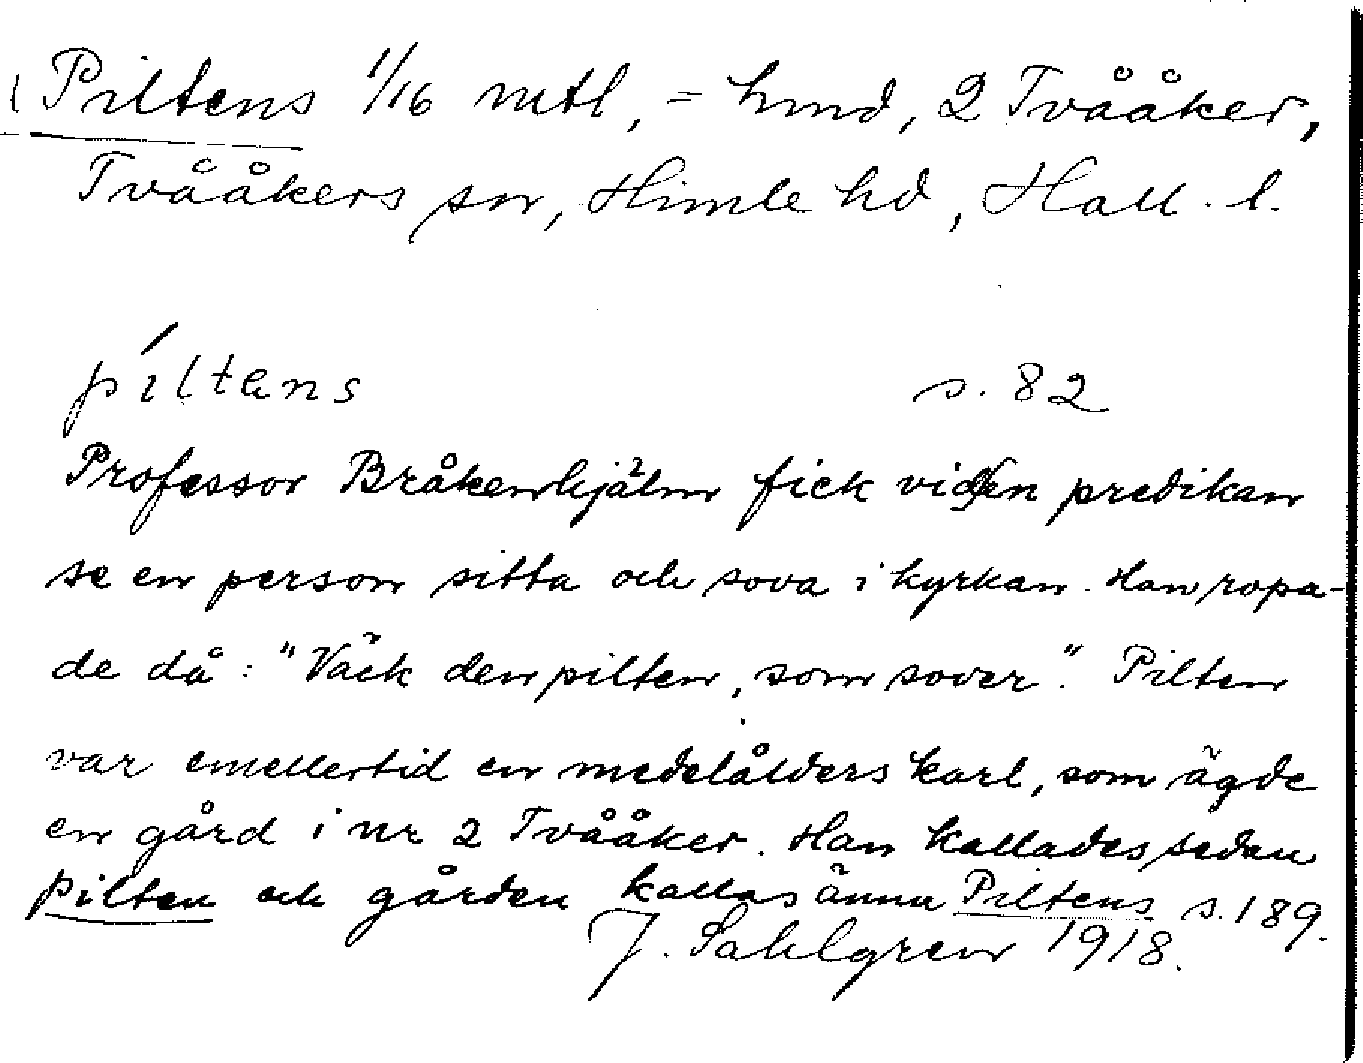 Piltens 1/16 mtl, = hmd, 2 Tvååker,
Tvååkers sn, Himle hd, Hall. l.
píltens s. 82
Professor Bråkenhjälm fick viden predikan
se en person sitta och sova i kyrkan. Han ropa-
de då: "Väck den pilten, som sover". Pilten
var emellertid en medelålders karl, som ägde
en gård i nr 2 Tvååker. Han kallades sedan
Pilten och gården kallas ännu Piltens s. 189.
J. Sahlgren 1918.